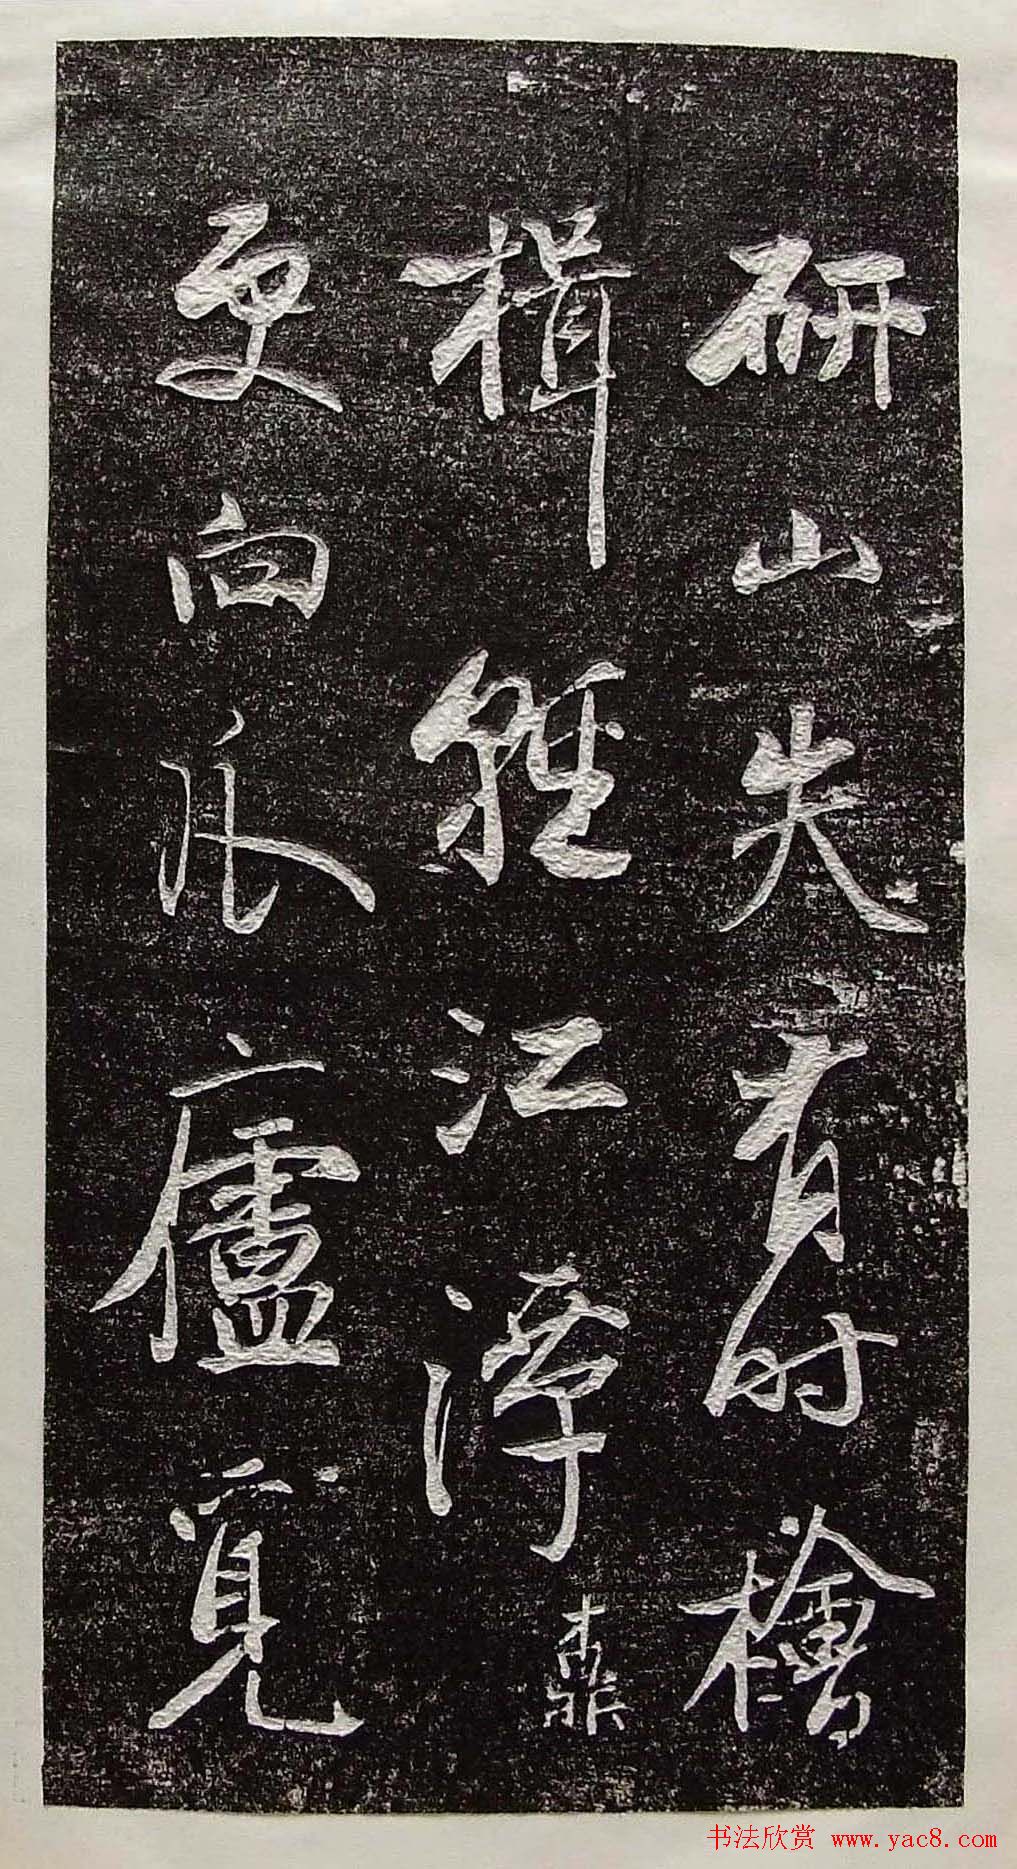 研山失有時檜
楫經江潭
更向瓜廬覓
书法欣赏 www.yac8.com